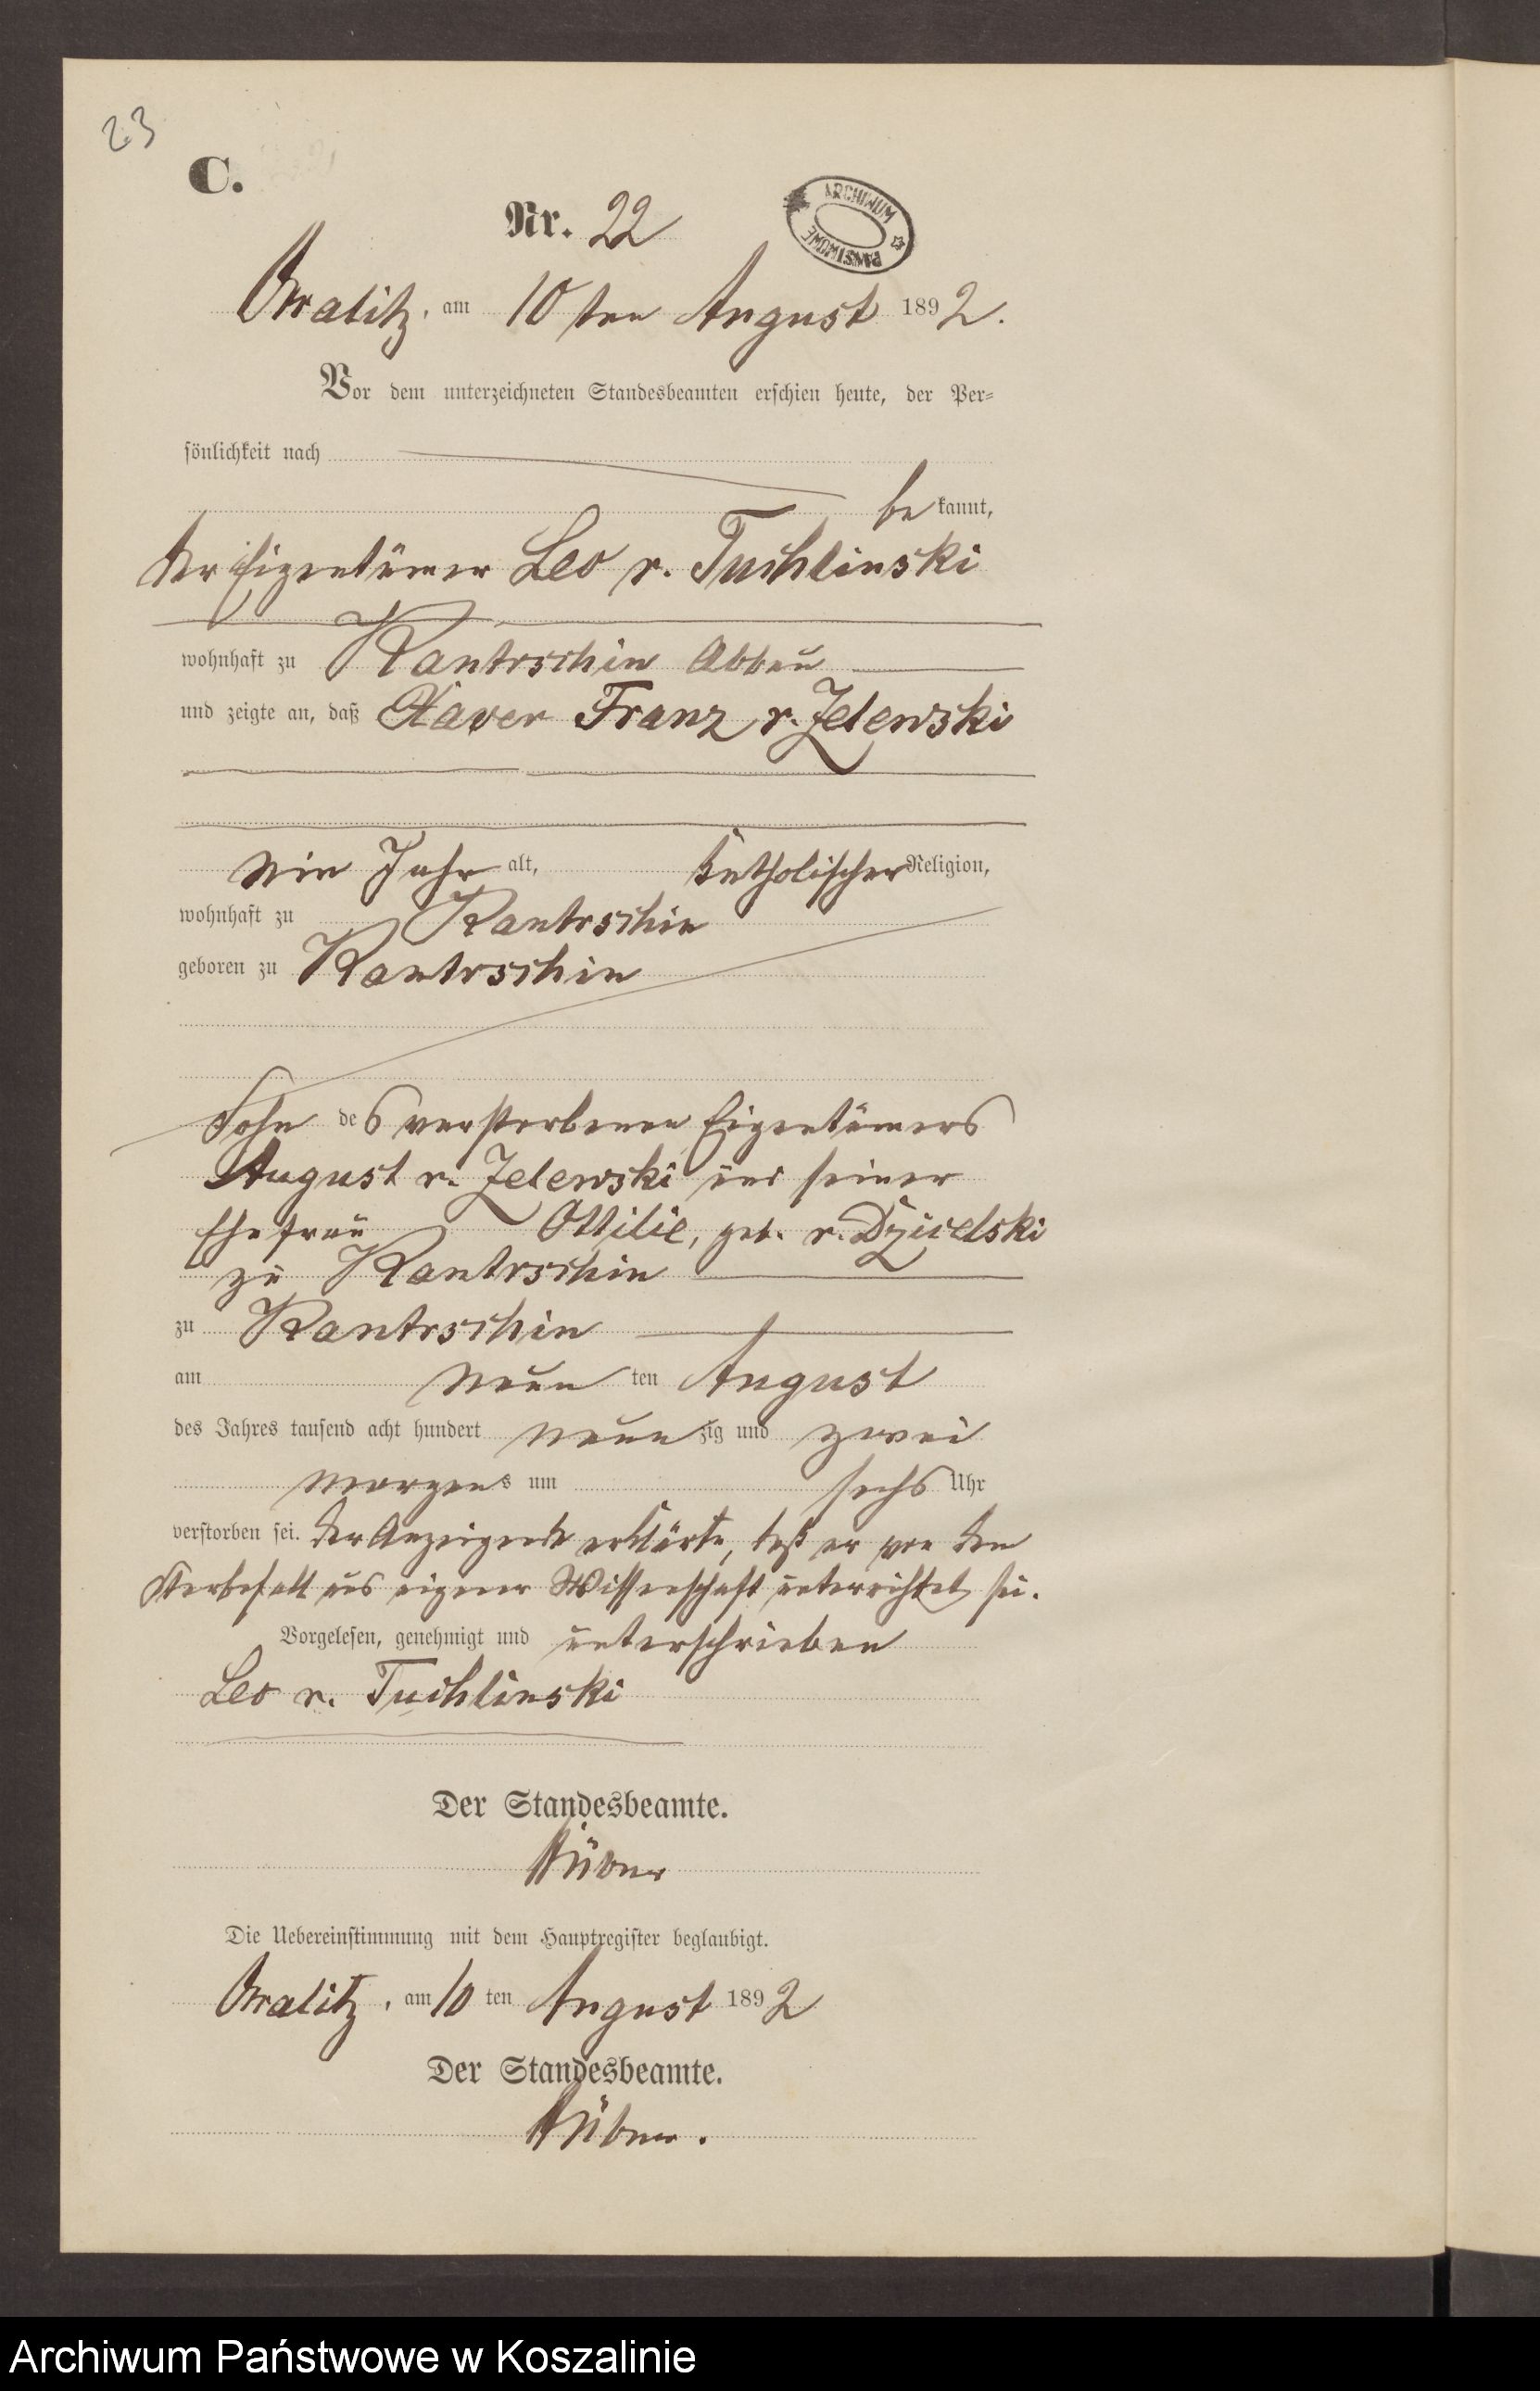 23
C.
Nr. 22
ARCHIWUM PAŃSTWOWE
Wralitz, am 10 ten August 1892.
Vor dem unterzeichneten Standesbeamten erschien heute, der Per=
sönlichkeit nach
bekannt,
der Eigentümer Leo v. Tuchlinski
wohnhaft zu Kantrschin Abbau
und zeigte an, daß Xaver Franz v. Zelewski
Jahr alt, katholischer Religion,
wohnhaft zu Kantrschin
geboren zu Kantrschin
Sohn des verstorbenen Eigentümers
August v. Zelewski und seiner
Ehefrau Ottilie, geb. v. Dzicelski
zu Kantrschin
zu Kantrschin
am neun ten August
des Jahres tausend acht hundert neunzig und zwei
Morgens um sechs Uhr
verstorben sei. Der Anzeigende erklärte, daß er von dem
Sterbefall aus eigener Wissenschaft unterrichtet sei.
Vorgelesen, genehmigt und unterschrieben
Leo v. Tuchlinski
Der Standesbeamte.
Hübner
Die Uebereinstimmung mit dem Hauptregister beglaubigt.
Wralitz, am 10 ten August 1892
Der Standesbeamte.
Hübner.
Archiwum Państwowe w Koszalinie